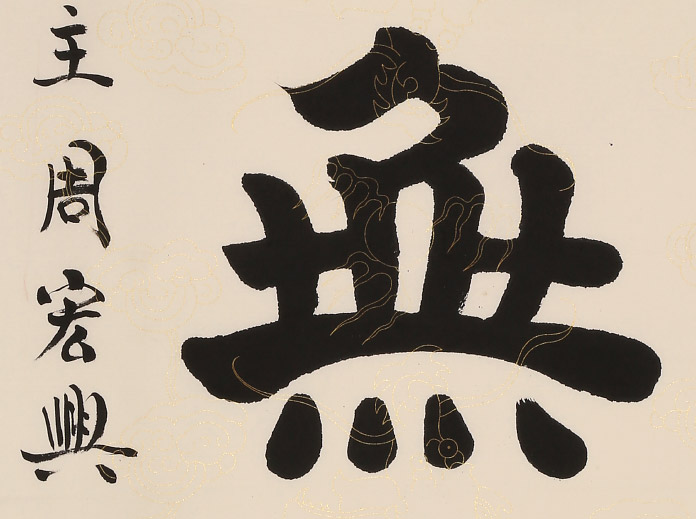 無
主周宏興